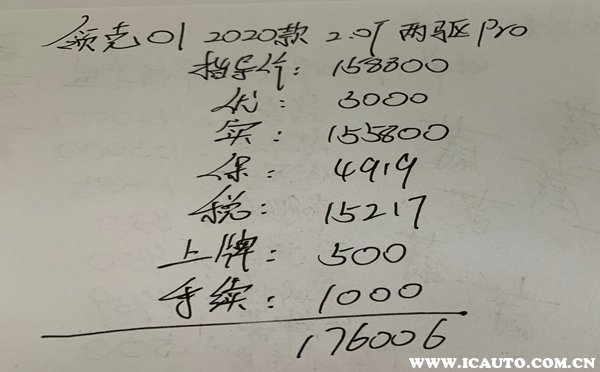 领克01 2020款 2.0T 两驱Pro
指导价: 158800
优: 3000
实: 155800
保: 4919
税: 15217
上牌: 500
手续: 1000
176006
WWW.ICAUTO.COM.CN